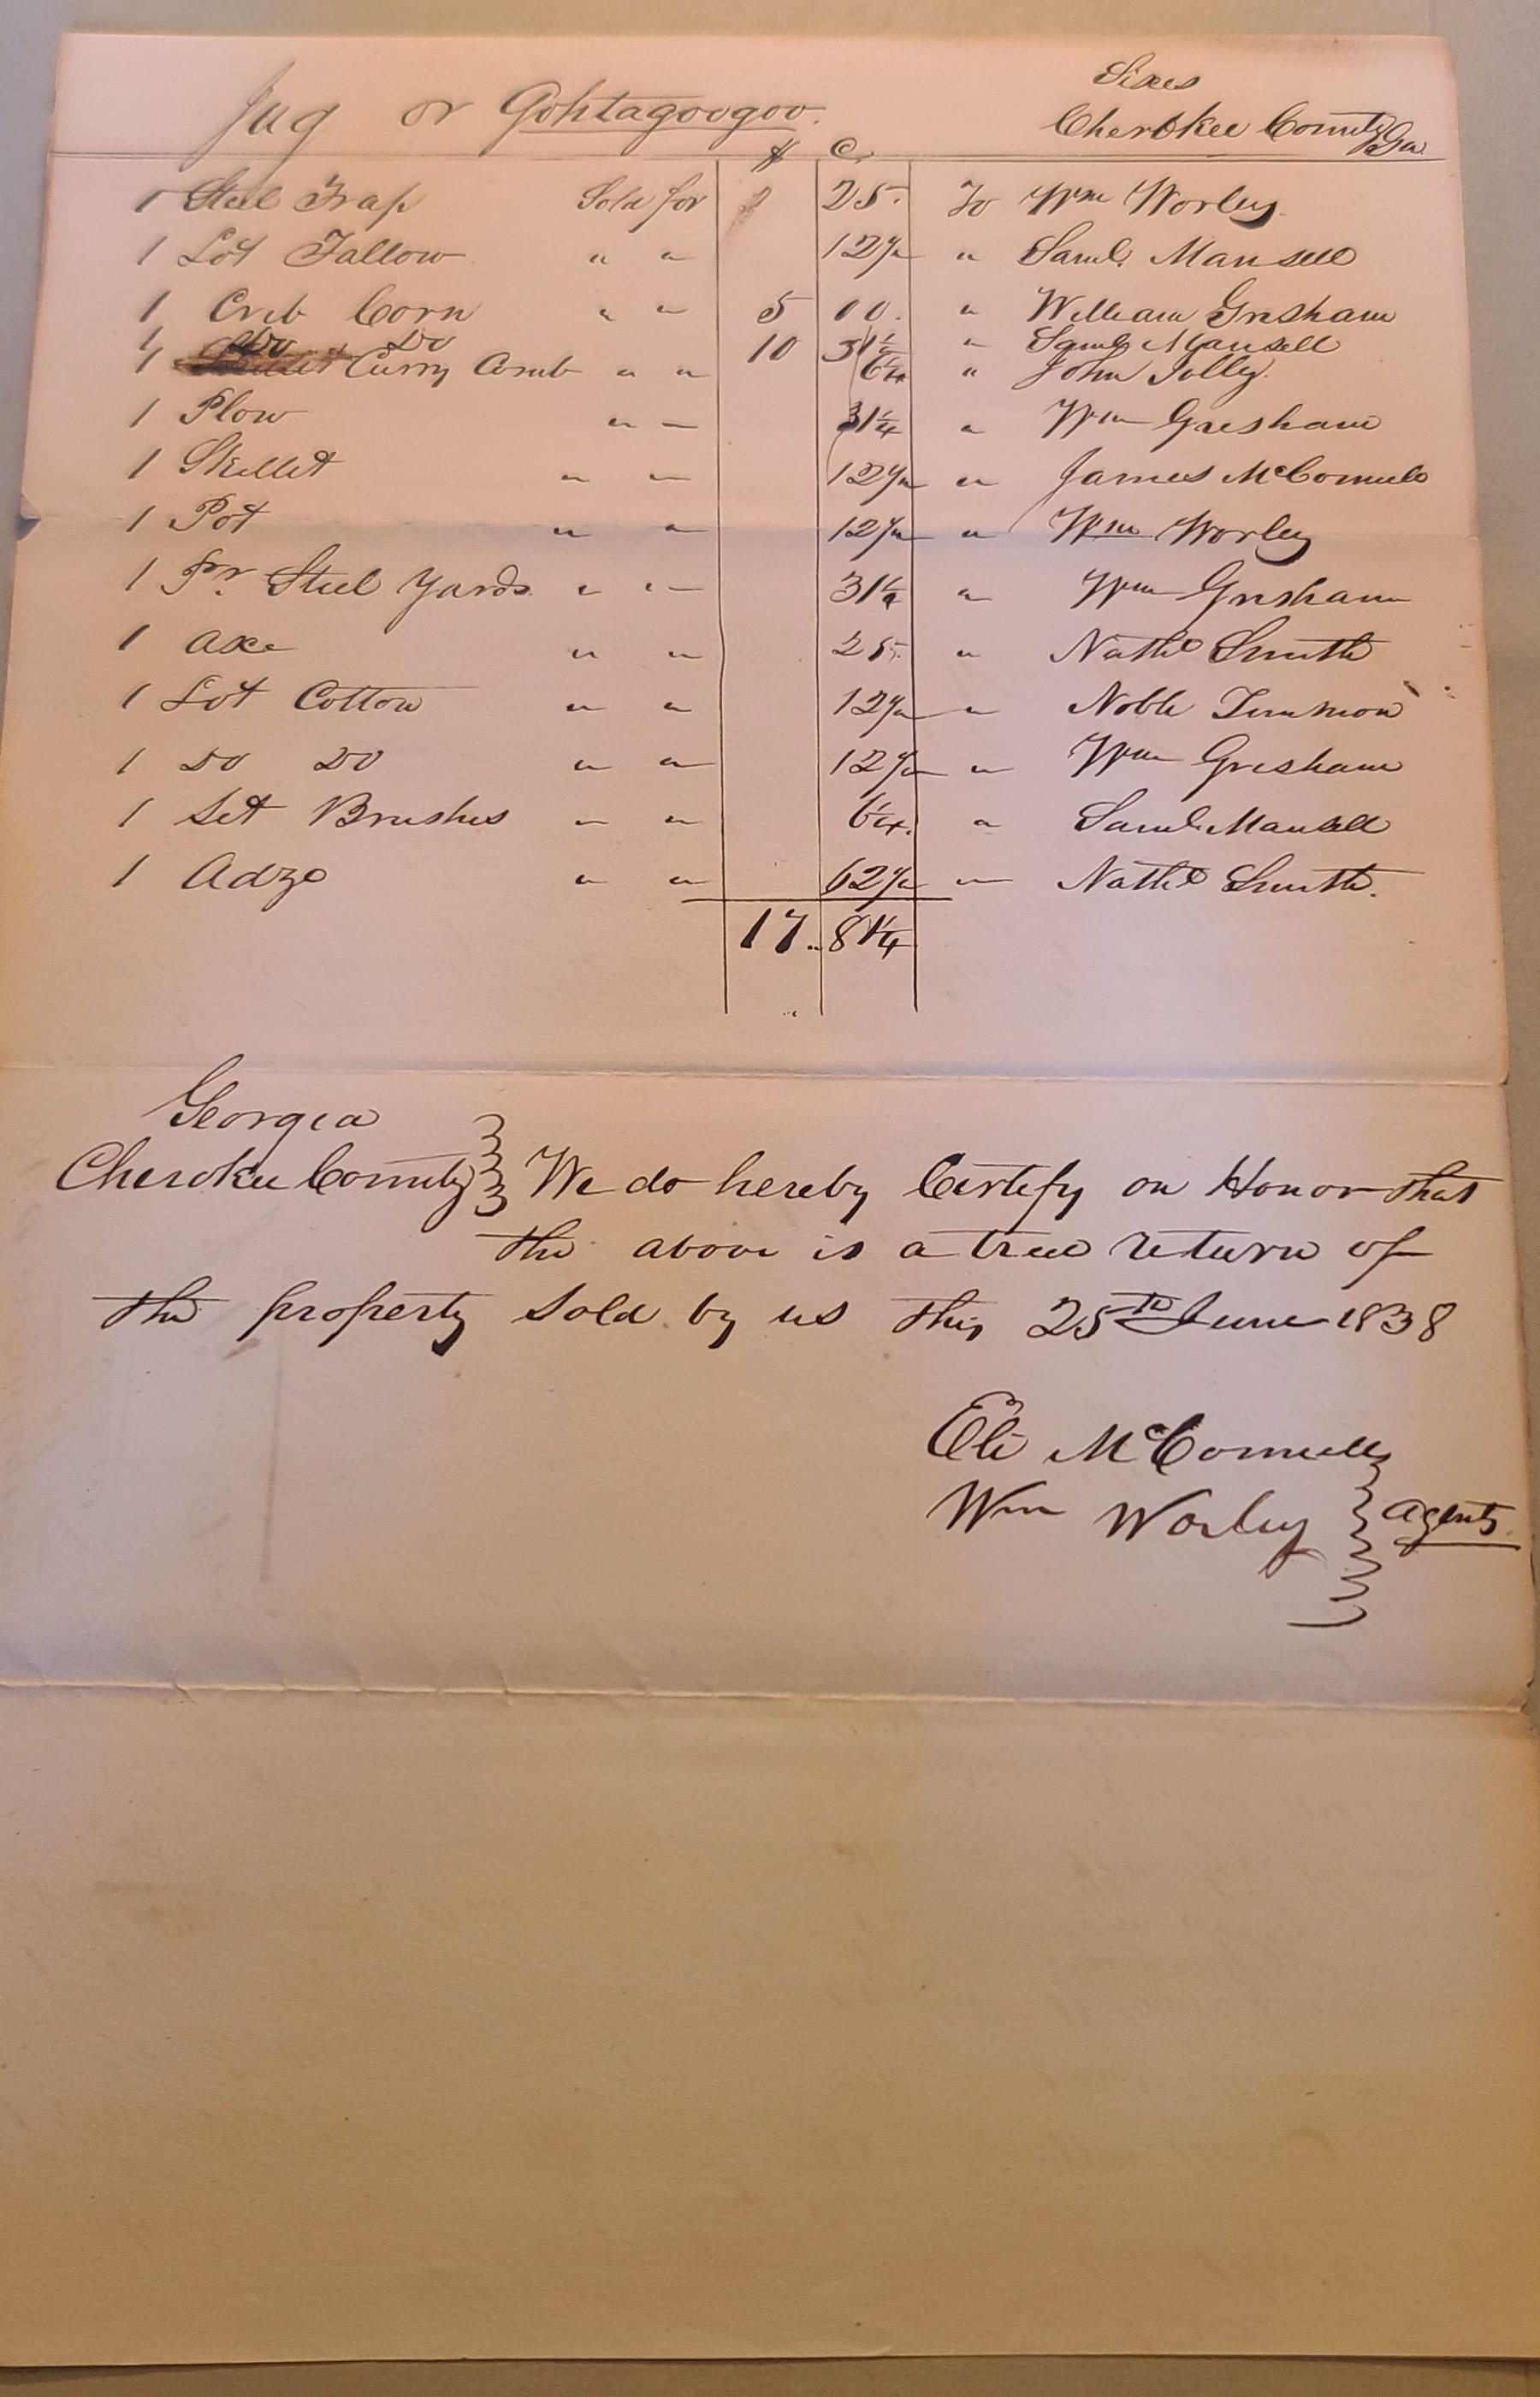 Sixes
Jug or Gohtagoogoo. Cherokee County Ga
$ C.
1 Steel Trap Sold for 25. To Wm Worley.
1 Lot Tallow " " 12½ " Saml. Mansell
1 Crib Corn " " 5 00. " William Grisham
1 Do Do 10 31¼ " Saml Mansell
1 Curry Comb " " 6¼ " John Jolly.
1 Plow " " 31¼ " Wm Grisham
1 Skillet " " 12½ " James McConnell
1 Pot " " 12½ " Wm Worley
1 Pr. Steel Yards " " 31¼ " Wm Grisham
1 Axe " " 25. " Nathl Smith
1 Lot Cotton " " 12½ " Noble Timmon
1 Do Do " " 12½ " Wm Grisham
1 Set Brushes " " 6¼. " Saml Mansell
1 Adze " " 62½ " Nathl Smith.
17..81¼
Georgia
Cherokee County We do hereby Certify on Honor that
the above is a true return of
the property sold by us this 25th June 1838
Eli McConnell
Wm Worley Agents.